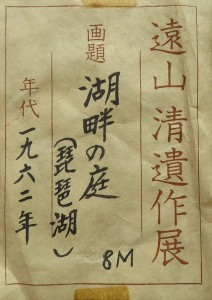 遠山 清遺作展
画題
湖畔の庭
(琵琶湖)
8M
年代
一九六二年